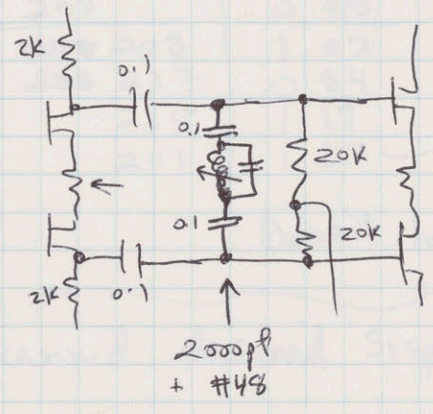 2K
0.1
0.1
20K
0.1
20K
2K
0.1
2000pf
+ #48